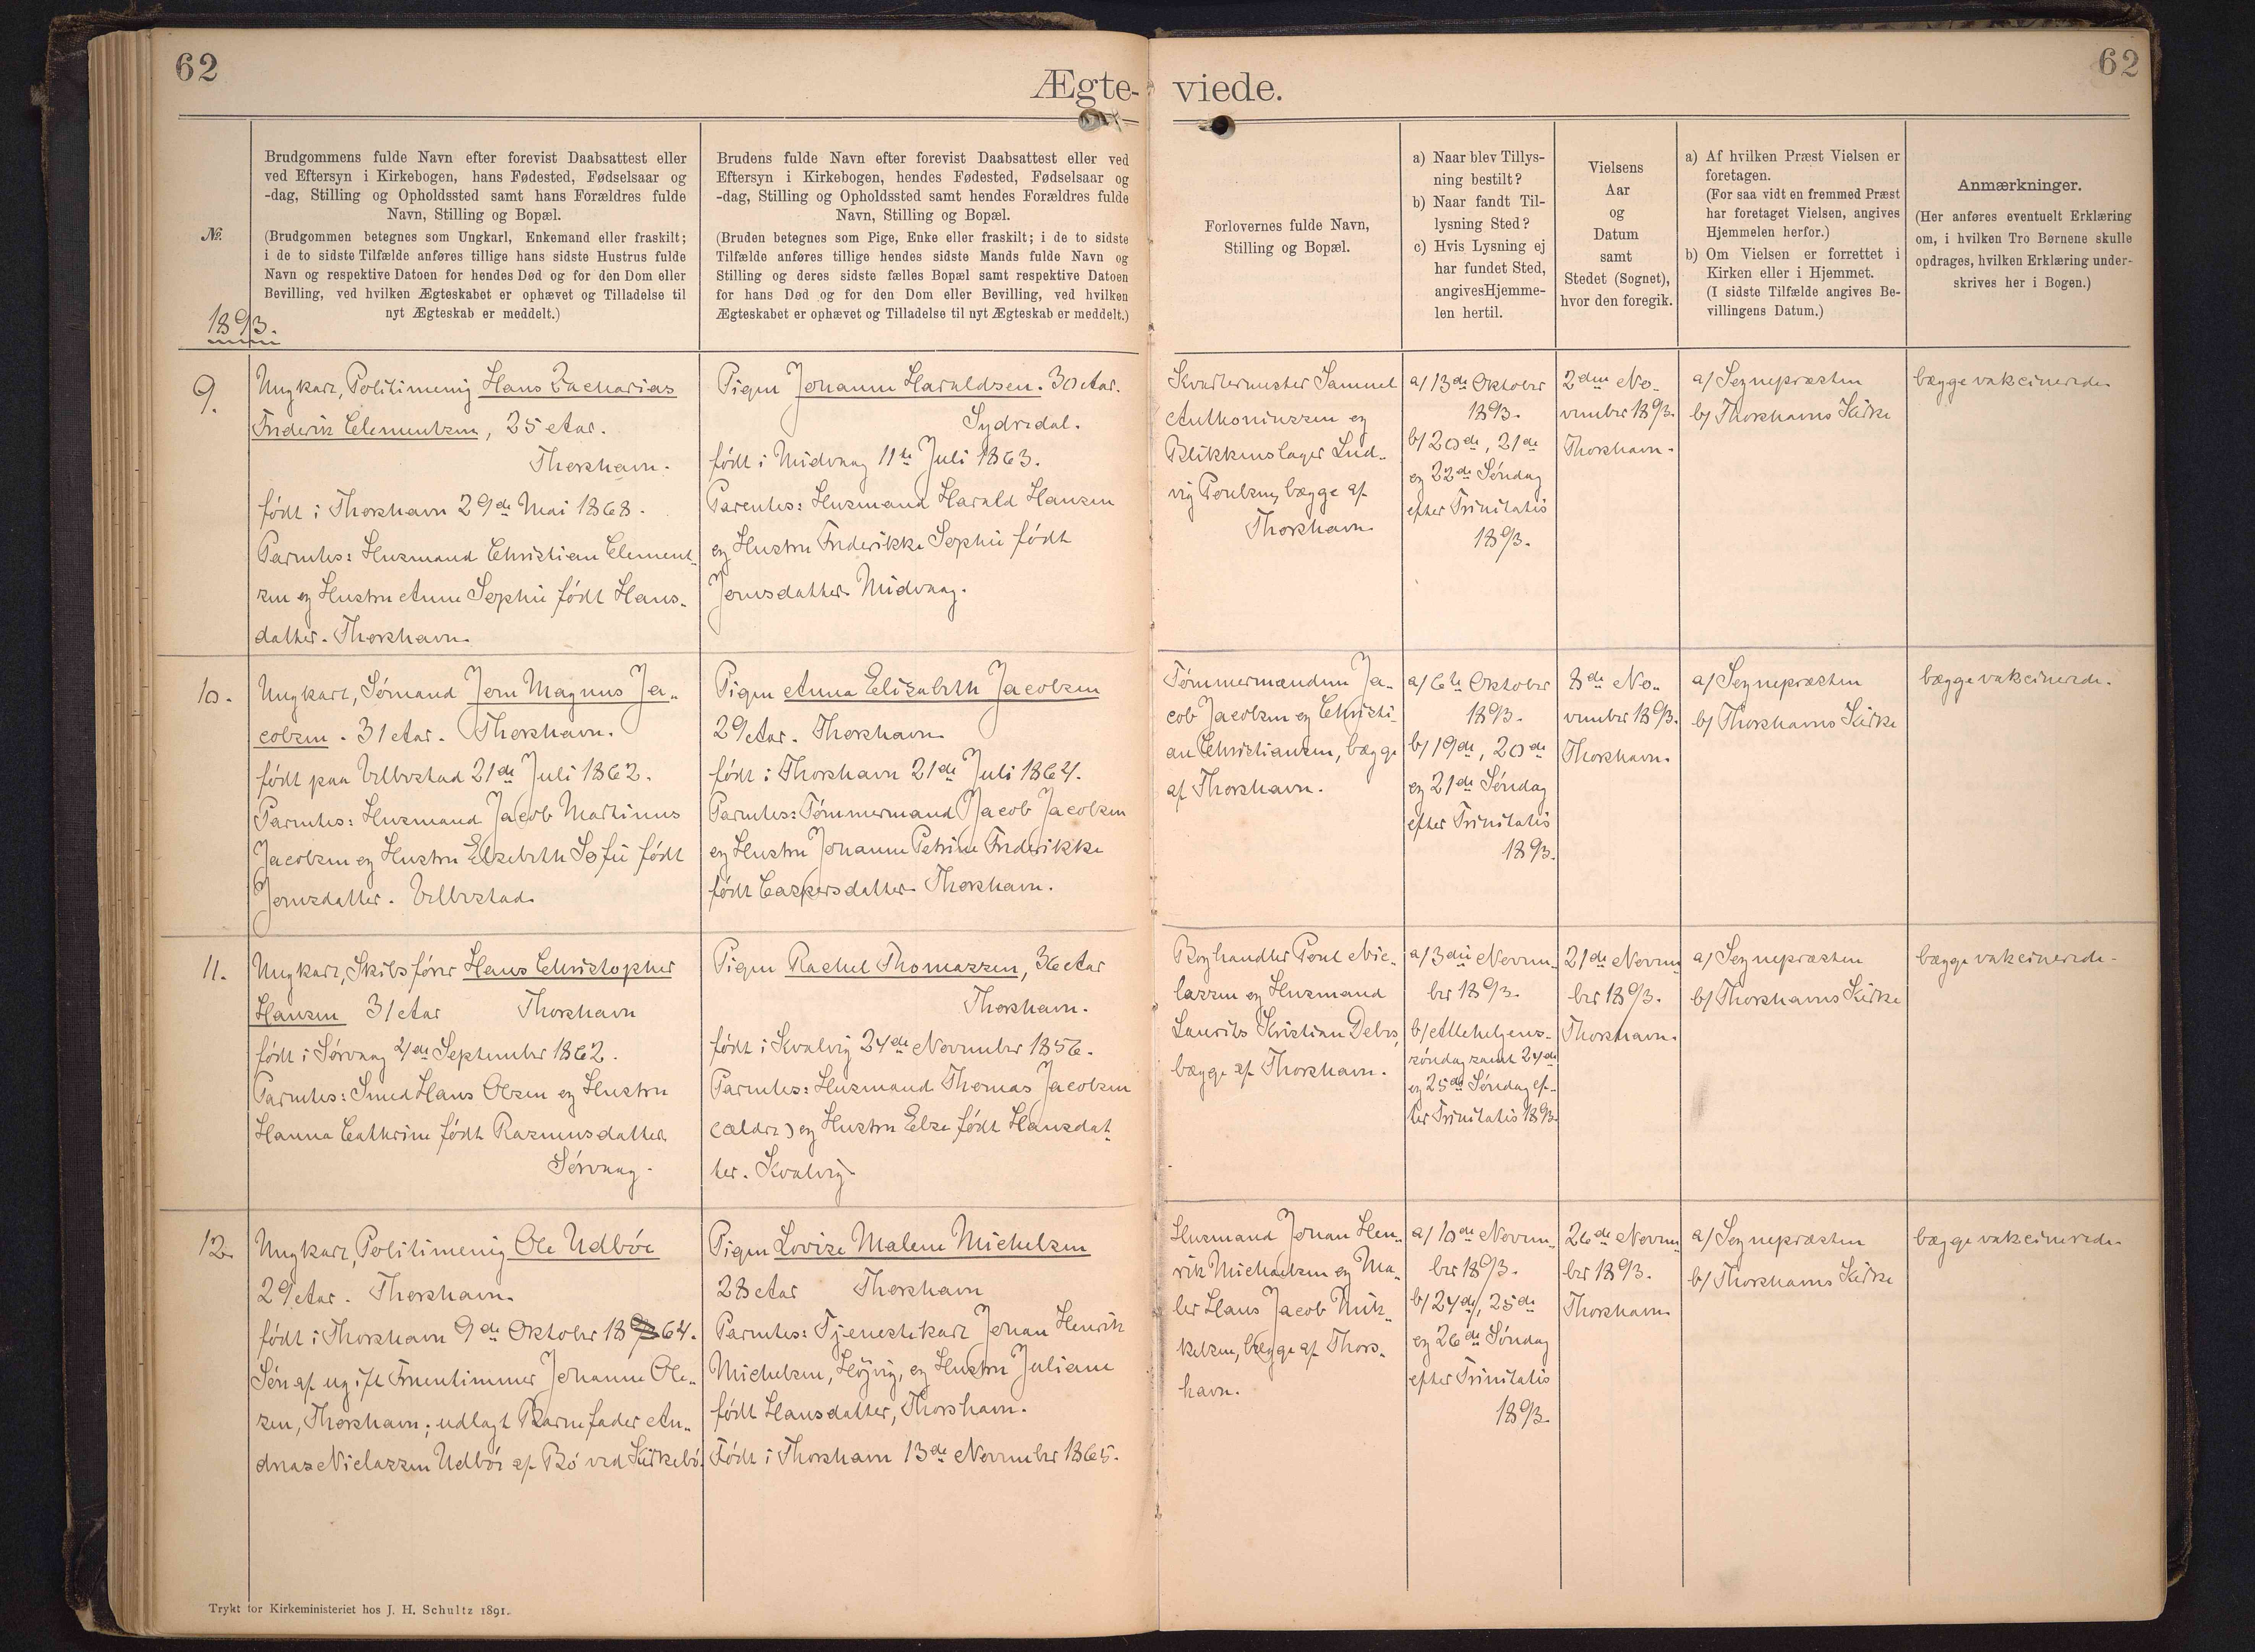 62
62
Ægte-viede.
№.
1893.
Brudgommens fulde Navn efter forevist Daabsattest eller
ved Eftersyn i Kirkebogen, hans Fødested, Fødselsaar og
-dag, Stilling og Opholdssted samt hans Forældres fulde
Navn, Stilling og Bopæl.
(Brudgommen betegnes som Ungkarl, Enkemand eller fraskilt;
i de to sidste Tilfælde anføres tillige hans sidste Hustrus fulde
Navn og respektive Datoen for hendes Død og for den Dom eller
Bevilling, ved hvilken Ægteskabet er ophævet og Tilladelse til
nyt Ægteskab er meddelt.)
Brudens fulde Navn efter forevist Daabsattest eller ved
Eftersyn i Kirkebogen, hendes Fødested, Fødselsaar og
-dag, Stilling og Opholdssted samt hendes Forældres fulde
Navn, Stilling og Bopæl.
(Bruden betegnes som Pige, Enke eller fraskilt; i de to sidste
Tilfælde anføres tillige hendes sidste Mands fulde Navn og
Stilling og deres sidste fælles Bopæl samt respektive Datoen
for hans Død og for den Dom eller Bevilling, ved hvilken
Ægteskabet er ophævet og Tilladelse til nyt Ægteskab er meddelt.)
Forlovernes fulde Navn,
Stilling og Bopæl.
a) Naar blev Tillys-
ning bestilt?
b) Naar fandt Til-
lysning Sted?
c) Hvis Lysning ej
har fundet Sted,
angivesHjemme-
len hertil.
Vielsens
Aar
og
Datum
samt
Stedet (Sognet),
hvor den foregik.
a) Af hvilken Præst Vielsen er
foretagen.
(For saa vidt en fremmed Præst
har foretaget Vielsen, angives
Hjemmelen herfor.)
b) Om Vielsen er forrettet i
Kirken eller i Hjemmet.
(I sidste Tilfælde angives Be-
villingens Datum.)
Anmærkninger.
(Her anføres eventuelt Erklæring
om, i hvilken Tro Børnene skulle
opdrages, hvilken Erklæring under-
skrives her i Bogen.)
9.
Ungkarl, Politimenig Hans Zacharias
Frederik Clementsen, 25 Aar.
Thorshavn.
født i Thorshavn 29de Mai 1868.
Parentes: Husmand Christian Clement-
sen og Hustru Anne Sophie født Hans-
datter. Thorshavn.
Pigen Johanne Haraldsen. 30 Aar.
Sydredal.
født i Midvaag 11te Juli 1863.
Parentes: Husmand Harald Hansen
og Hustru Frederikke Sophie født
Jonsdatter. Midvaag.
Kvartermester Samuel
Anthoniussen og
Blikkenslager Lud-
vig Poulsen, begge af
Thorshavn.
a/ 13de Oktober
1893.
b/ 20de, 21de
og 22de Søndag
efter Trinitatis
1893.
2den No-
vember 1893.
Thorshavn.
a/ Sognepræsten
b/ Thorshavns Kirke
begge vakcinerede.
10.
Ungkarl, Sømand Jens Magnus Ja-
cobsen. 31 Aar. Thorshavn.
født paa Velbestad 21de Juli 1862.
Parentes: Husmand Jacob Martinus
Jacobsen og Hustru Elsebeth Sofie født
Jonsdatter. Velbestad.
Pigen Anna Elisabeth Jacobsen
29 Aar. Thorshavn.
født i Thorshavn 21de Juli 1864.
Parentes: Tømmermand Jacob Jacobsen
og Hustru Johanne Petrine Frederikke
født Caspersdatter. Thorshavn.
Tømmermændene Ja-
cob Jacobsen og Christi-
an Christiansen, begge
af Thorshavn.
a/ 6te Oktober
1893.
b/ 19de, 20de
og 21de Søndag
efter Trinitatis
1893.
8de No-
vember 1893.
Thorshavn.
a/ Sognepræsten
b/ Thorshavns Kirke
begge vakcinerede.
11.
Ungkarl, Skibsfører Hans Christopher
Hansen 31 Aar Thorshavn
født i Sørvaag 4de September 1862.
Parentes: Smed Hans Olsen og Hustru
Hanna Cathrine født Rasmusdatter.
Sørvaag.
Pigen Rachel Thomassen, 36 Aar
Thorshavn.
født i Kvalvig 24de November 1856.
Parentes: Husmand Thomas Jacobsen
(ældre) og Hustru Else født Hansdat-
ter. Kvalvig.
Boghandler Poul Nic-
lassen og Husmand
Laurits Kristian Debes,
begge af Thorshavn.
a/ 3die Novem-
ber 1893.
b/ Allehelgens-
søndag samt 24de
og 25de Søndag ef-
ter Trinitatis 1893.
21de Novem-
ber 1893.
Thorshavn.
a/ Sognepræsten
b/ Thorshavns Kirke
begge vakcinerede.
12.
Ungkarl, Politimenig Ole Udbøe
29 Aar. Thorshavn.
født i Thorshavn 9de Oktober 1864.
Søn af ugift Fruentimmer Johanne Ole-
sen, Thorshavn; udlagt Barnefader An-
dreas Niclassen Udbøe af Bø ved Kirkebø.
Pigen Lovise Malene Michelsen
28 Aar Thorshavn
Parentes: Tjenestekarl Johan Henrik
Michelsen, Højvig, og Hustru Juliane
født Hansdatter, Thorshavn.
Født i Thorshavn 13de November 1865.
Husmand Johan Hen-
rik Michaelsen og Ma-
ler Hans Jacob Mik-
kelsen, begge af Thors-
havn.
a/ 10de Novem-
ber 1893.
b/ 24de, 25de
og 26de Søndag
efter Trinitatis
1893.
26de Novem-
ber 1893.
Thorshavn
a/ Sognepræsten
b/ Thorshavns Kirke
begge vakcinerede.
Trykt for Kirkeministeriet hos J. H. Schultz 1891.